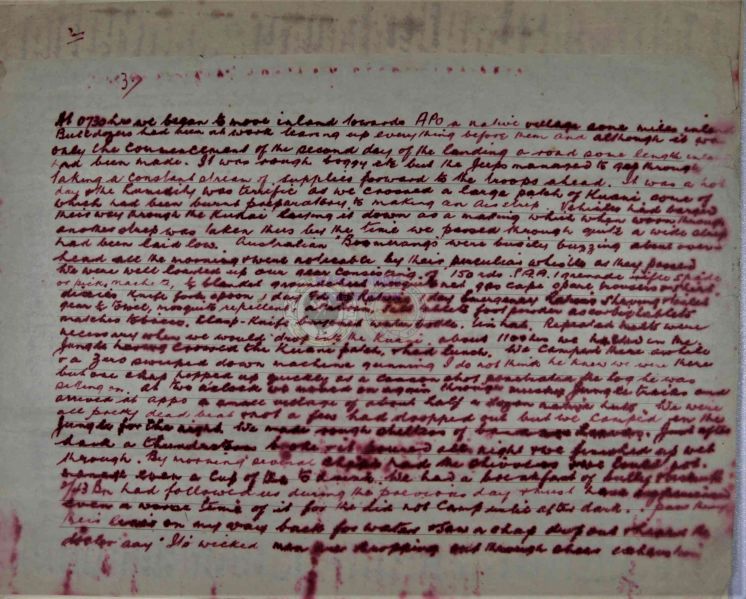 2
3
At 0730 hrs we began to move inland towards APO a native village some miles inland
Bulldozers had been at work tearing up everything before them and although it was
only the commencement of the second day of the landing a road some length inland
had been made. It was rough boggy etc but the jeeps managed to get through
taking a constant stream of supplies forward to the troops ahead. It was a hot
day & the humidity was terrific as we crossed a large patch of Kunai, some of
which had been burnt preparatory to making an air strip. Vehicles had barged
their way through the Kunai laying it down as a matting which when worn through
another strip was taken thus by the time we passed through quite a wide strip
had been laid low. Australian "Boomerangs" were busily buzzing about over
head all the morning & were noticeable by their peculiar whistle as they passed
We were well loaded up our gear consisting of 150 rds S.A.A. 1 grenade rifle spade
or pick, machete, ½ blanket groundsheet mosquito net, gas cape spare trousers & shirt
dixies, Knife fork, spoon, 1 day 1 day Emergency Rations Shaving & toilet
gear & towel, mosquito repellent foot powder ascorbic tablets
matches tobacco, Clasp-Knife water bottle. Tin hat. Repeated halts were
necessary when we would drop into the Kunai. about 1100 hrs we halted in the
jungle having crossed the Kunai patch, & had lunch. We camped there awhile
& a Zero swooped down machine gunning I do not think he knew we were there
but one chap hopped up quickly as a cannon shot penetrated the log he was
sitting on. At two o'clock we moved on again through mushy jungle trails and
arrived at Apo a small village of about half a dozen native huts. We were
all pretty dead beat & not a few had dropped out but we camped in the
jungle for the night. We made rough shelters of banana leaves. Just after
dark a thunderstorm broke & it poured all night & we finished up wet
through. By morning several chaps had the shivers & we could not
even a cup of tea to drink. We had a breakfast of bully & biscuits
2/13 Bn had followed us during the previous day & must have experienced
even a worse time of it for they did not camp until after dark. I pass through
their lines on my way back for water & saw a chap drop out & heard the
doctor say "Its wicked men are dropping out through sheer exhaustion